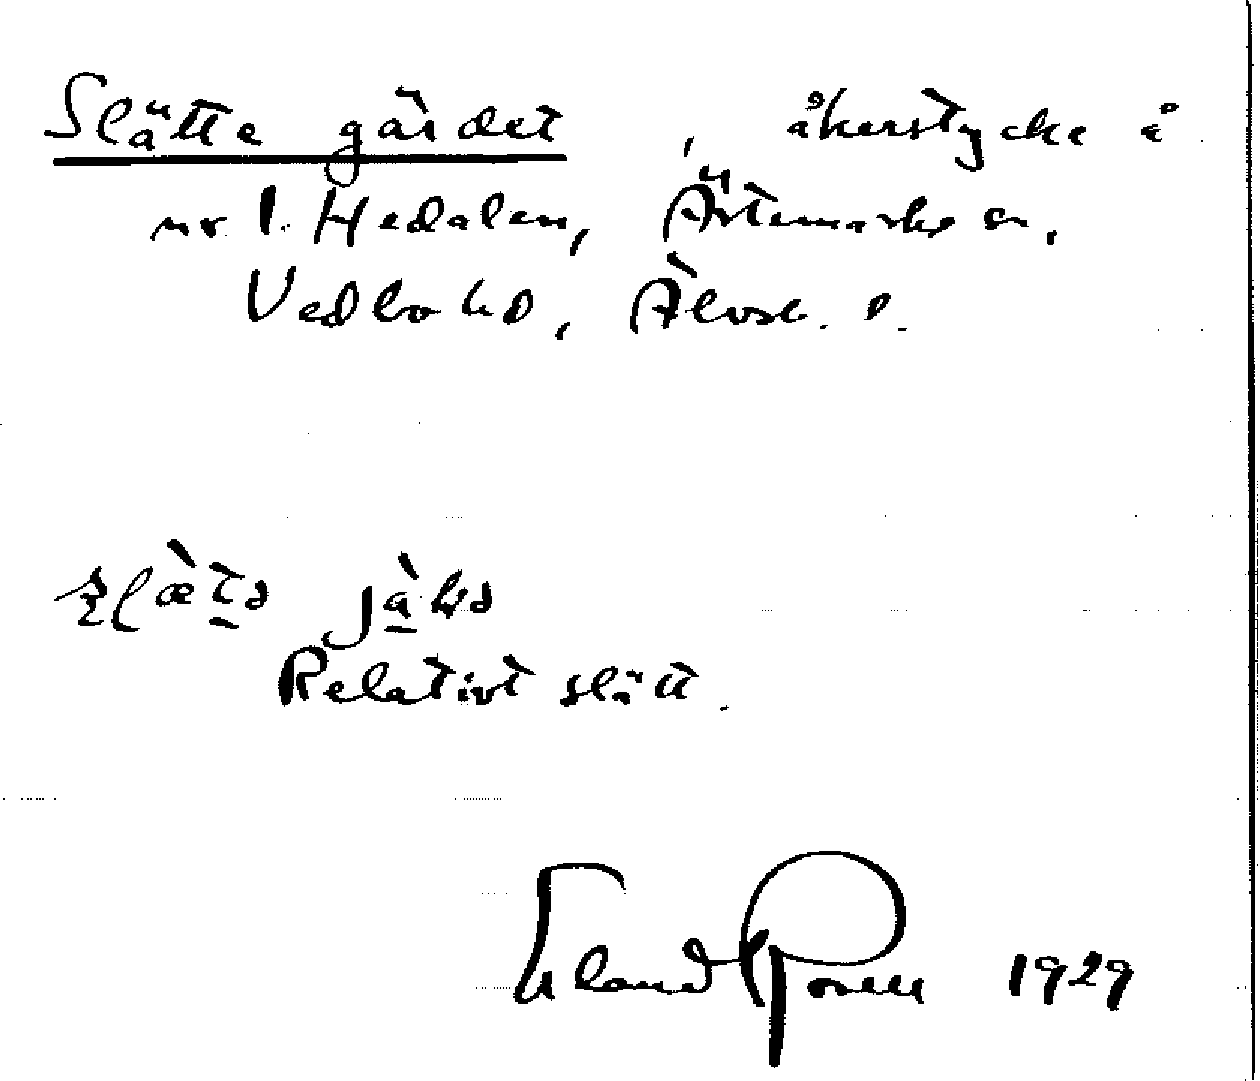 Slätte gärdet, åkerstycke å
nr 1. Hedalen, Ärtemarks sn,
Vedbo hd, Älvsb. l.
Relativt slätt.
Erland Rosell 1929